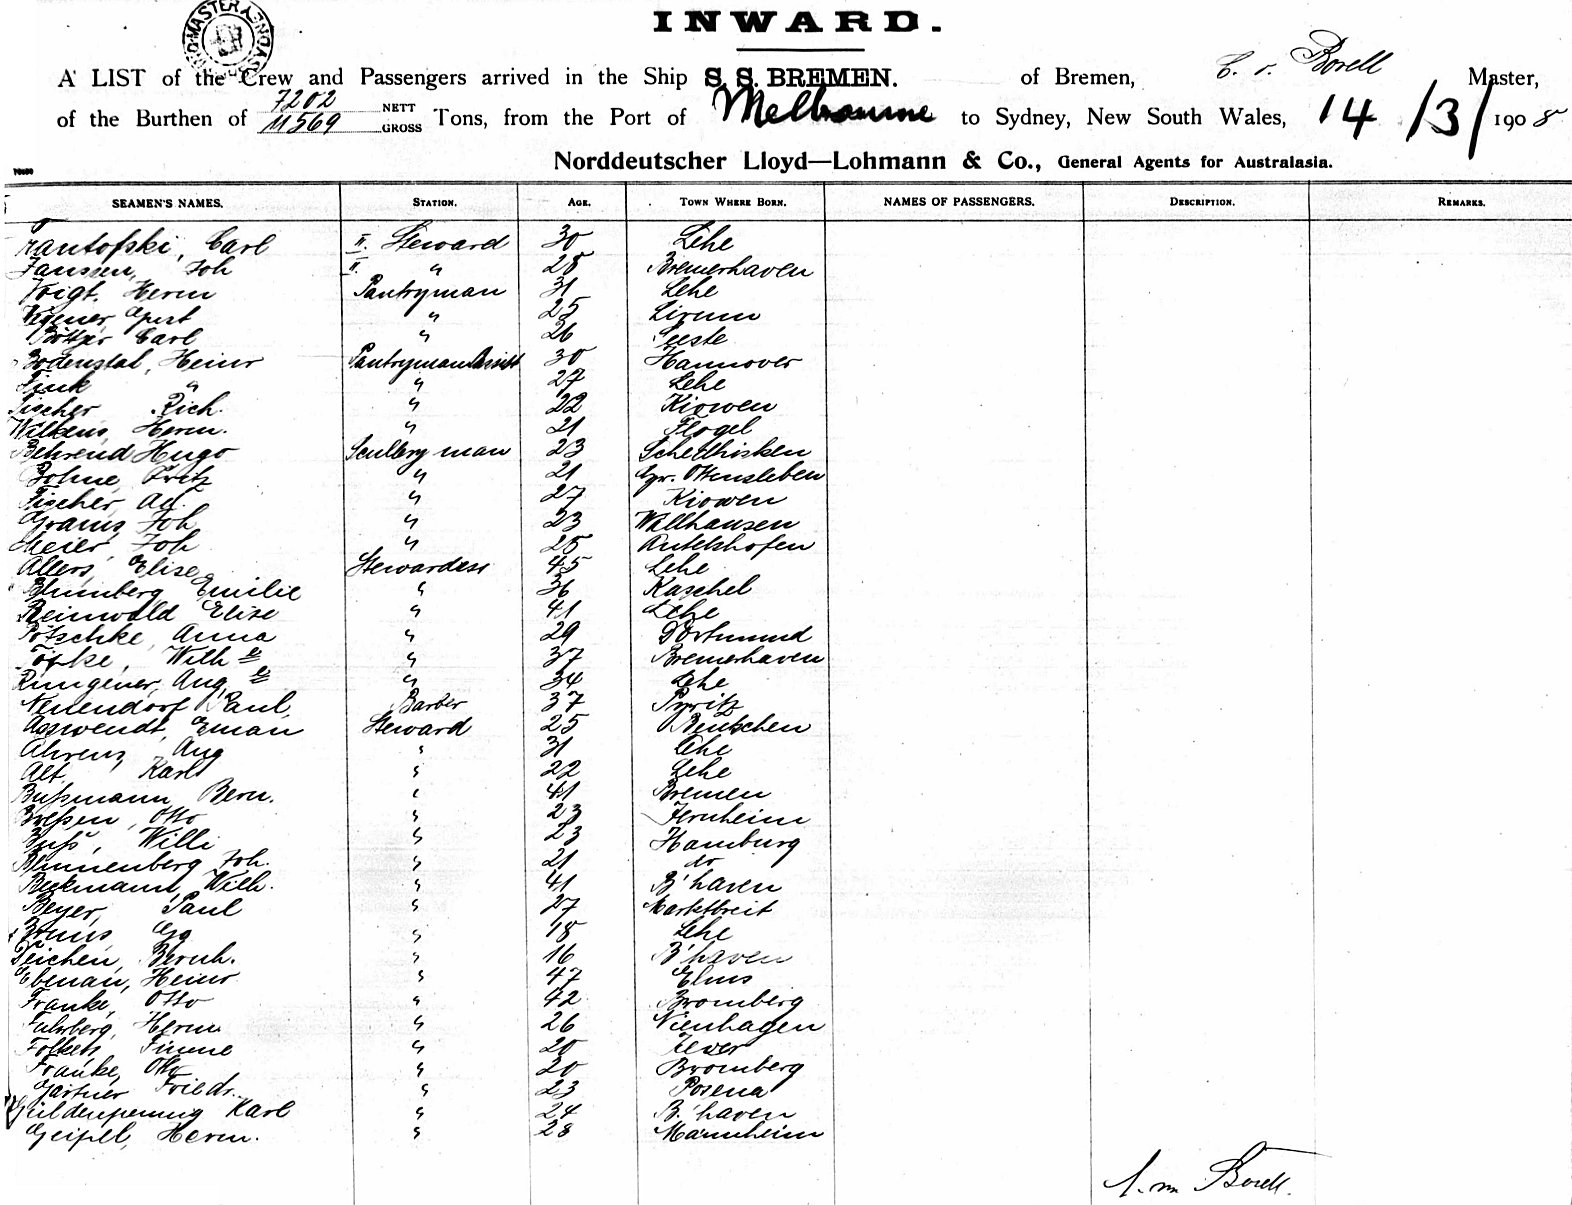 INWARD.
A LIST of the Crew and Passengers arrived in the Ship S. S. BREMEN. of Bremen, C. v. Borell Master,
of the Burthen of 7202 11569 NETT GROSS Tons, from the Port of Melbourne to Sydney, New South Wales, 14/3/1908
Norddeutscher Lloyd—Lohmann & Co., General Agents for Australasia.
SEAMEN'S NAMES. STATION. AGE. TOWN WHERE BORN. NAMES OF PASSENGERS. DESCRIPTION. REMARKS.
Carl II. Steward 30 Lehe
Janssen, Joh II. " 28 Bremerhaven
Voigt, Herm Pantryman 31 Lehe
" 25
Böttjer Carl " 26 Seeste
Bodenstal, Heinr Pantryman Assist 30 Hannover
" " 27 Lehe
Fischer Rich. " 22 Kiowen
Wilkens, Herm. " 21 Flögel
Behrend Hugo Scullery man 23
Bohne, Fritz " 21 Gr. Ottensleben
Fischer, Ad. " 27 Kiowen
Grams, Joh " 23 Wallhausen
Meier, Joh " 25
Allers, Elise Stewardess 45 Lehe
Blumberg Emilie " 36 Kaschel
Reinwald Elise " 41 Lehe
Pötschke, Anna " 29 Dortmund
Töpke, Wilh e " 37 Bremerhaven
Rüngener, Aug. e " 34 Lehe
Neuendorf Paul, Barber 37 Pyritz
Asswendt, Eman Steward 25 Bentschen
Ahrens, Aug " 31 Lehe
Alt, Karl " 22 Lehe
Bußmann, Bern. " 41 Bremen
Otto " 23
Buß, Willi " 23 Hamburg
Joh. " 21 do
Beckmann, Wilh. " 41 B'haven
Beyer, Paul " 27 Marktbreit
" 18 Lehe
Deichen, Bernh. " 16 B'haven
Ebenau, Heinr " 47 Elms
Franke, Otto " 42 Bromberg
Fuhrberg, Herm " 26 Nienhagen
Folkers, " 20 Jever
Franke, Otto " 20 Bromberg
Gärtner Friedr. " 23 Posena
Güldenpenning Karl " 24 B.'haven
Geipel, Herm. " 28 Mannheim
C. v. Borell.